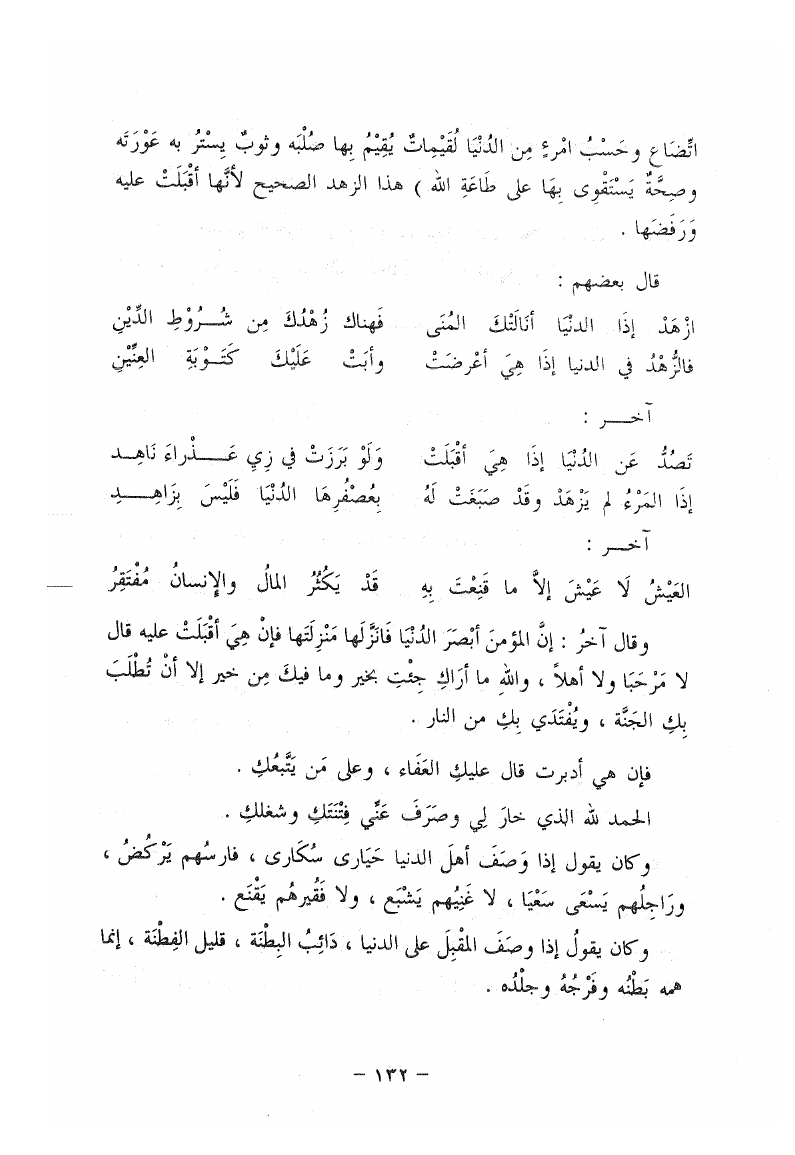 اتِّضَاع وحَسْبُ امْرءٍ مِن الدُنْيَا لُقَيْمِاتٌ يُقِيْمُ بِها صُلْبَه وثوبٌ يِسْتْرُ به عَوْرَتَه
وصِحَّةٌ يَسْتَقْوِى بِهَا على طَاعَةِ الله ) هذا الزهد الصحيح لأَنَّها أَقْبَلَتْ عليه
وَرَفَضَها .
قال بعضهم :
ازْهَدْ إِذَا الدنْيَا أَنَالَتْكَ المُنَى فَهناك زُهْدُكَ مِن شُرُوْطِ الدِّيْنِ
فالزُّهْدُ في الدنيا إِذَا هِيَ أَعْرضَتْ وأَبَتْ عَلَيْكَ كَتَوْبَةِ العِنِّيْنِ
آخر :
تَصُدُّ عَن الدُنْيَا إِذَا هِيَ أَقْبَلَتْ وَلَوْ بَرَزَتْ في زِي عَذْراءَ نَاهِد
إِذَا المَرْءُ لم يَزْهَدْ وقَدْ صَبَغَتْ لَهُ بِعُصْفُرِهَا الدنْيَا فَلَيْسَ بِزَاهِدِ
آخر :
العَيْشُ لَا عَيْشَ إِلاَّ ما قَنِعْتَ بِهِ قَدْ يَكْثُرُ المالُ والإِنسانُ مُفْتَقِرُ
وقال آخرُ : إِنَّ المؤمنَ أَبْصَرَ الدُنْيَا فَانَزَّلَها مَنْزِلَتَها فإِنْ هِيَ أَقْبَلَتْ عليه قال
لا مَرْحَبَا ولا أهلاً ، واللهِ ما أَرَاكِ جِئْتِ بخير وما فيكَ مِن خير إلا أنْ تُطْلَبَ
بِكِ الجَنَّة ، ويُفْتَدَي بِكِ من النار .
فإن هي أدبرت قال عليكِ العَفَاء ، وعلى مَن يَتَّبعُكِ .
الحمد لله الذي خارَ لِي وصَرَفَ عَنِّي فِتْنَتَكِ وشغلكِ .
وكان يقول إذا وَصَفَ أهلَ الدنيا حَيَارى سُكَارى ، فارسُهم يَرْكُضُ ،
ورَاجِلُهم يَسْعَى سَعْيَا ، لا غَنِيُهم يَشْبَع ، ولا فَقيرهُم يَقْنَع .
وكان يقولُ إذا وصَفَ المقْبِلَ على الدنيا ، دَائِبُ البِطْنَة ، قليل الفِطْنَة ، إنما
همه بَطْنُه وفَرْجُهُ وجِلْدُه .
– ١٣٢ –